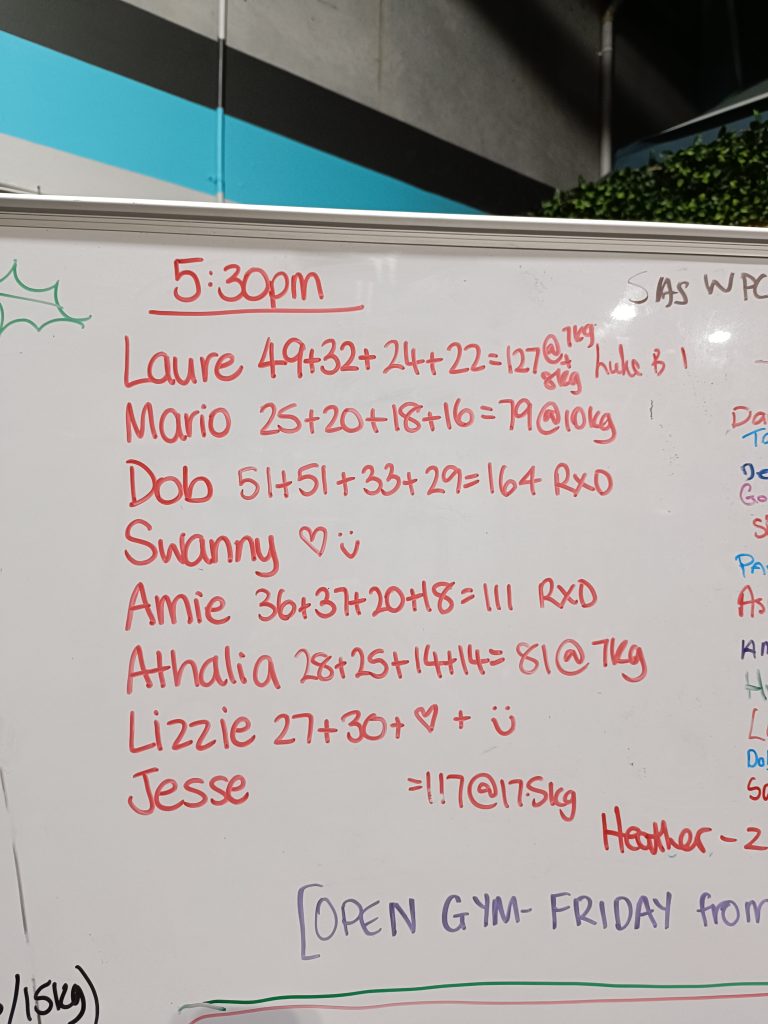 5:30pm
SAS WPC
Laure 49+32+24+22=127@7kg+8kg
Mario 25+20+18+16=79@10kg
Dob 51+51+33+29=164 RXD
Swanny ♡ ü
Amie 36+37+20+18=111 RXD
Athalia 28+25+14+14=81@7kg
Lizzie 27+30+♡+ü
Jesse =117@17.5kg
Heather - 2
[OPEN GYM- FRIDAY from
/15kg)